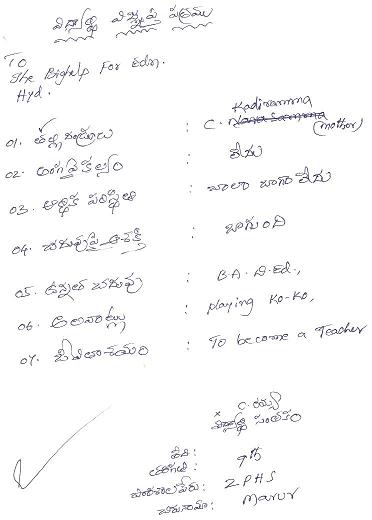 విద్యార్థి విజ్ఞప్తి పత్రము
To
The Bighelp For Edn.
Hyd.
01. తల్లిదండ్రులు : C. Kadiramma (mother)
02. అంగవైకల్యం : లేదు
03. ఆర్థిక పరిస్థితి : చాలా బాగా లేదు
04. చదువుపై ఆసక్తి : బాగుంది
05. ఉన్నత చదువు : B.A. D.Ed.,
06. అలవాట్లు : playing Ko-Ko,
07. జీవితాశయం : To become a Teacher
విద్యార్థి సంతకం
పేరు:
తరగతి: 9th
పాఠశాల పేరు: ZPHS
చిరునామా: Marur